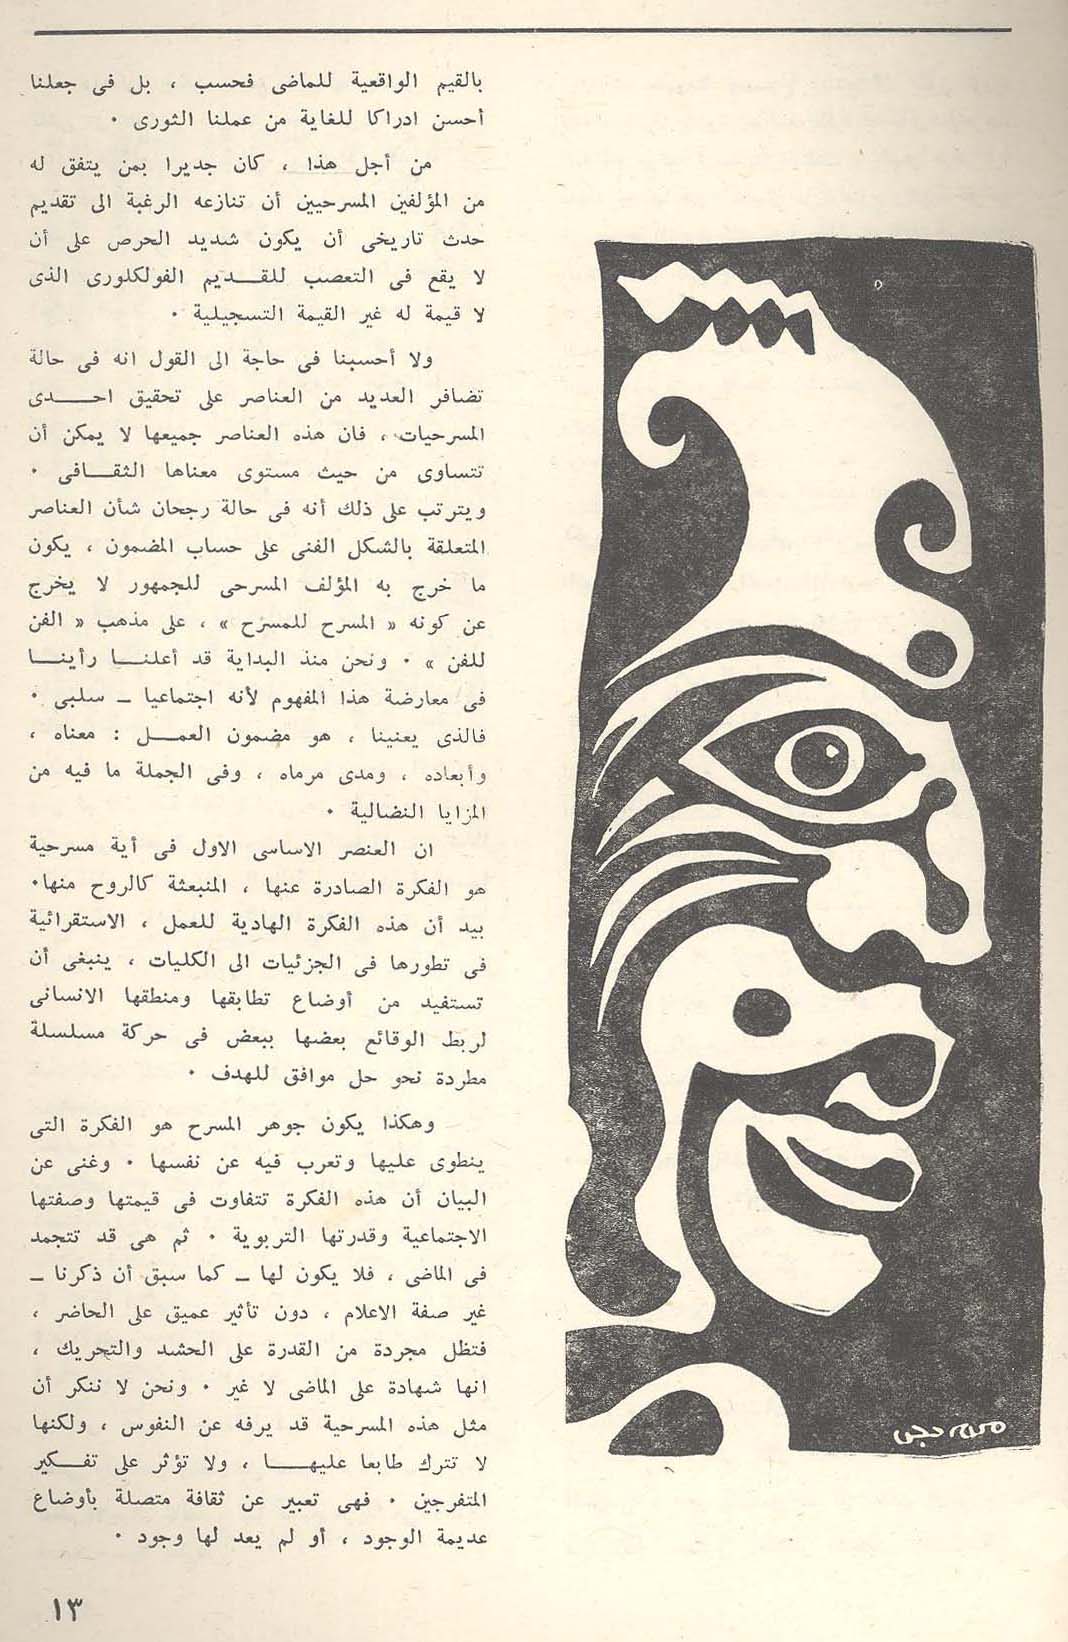 بالقيم الواقعية للماضى فحسب ، بل فى جعلنا
أحسن ادراكا للغاية من عملنا الثورى ٠
من أجل هذا ، كان جديرا بمن يتفق له
من المؤلفين المسرحيين أن تنازعه الرغبة الى تقديم
حدث تاريخى أن يكون شديد الحرص على أن
لا يقع فى التعصب للقـــديم الفولكلورى الذى
لا قيمة له غير القيمة التسجيلية ٠
ولا أحسبنا فى حاجة الى القول انه فى حالة
تضافر العديد من العناصر على تحقيق احـــدى
المسرحيات ، فان هذه العناصر جميعها لا يمكن أن
تتساوى من حيث مستوى معناها الثقــافى ٠
ويترتب على ذلك أنه فى حالة رجحان شأن العناصر
المتعلقة بالشكل الفنى على حساب المضمون ، يكون
ما خرج به المؤلف المسرحى للجمهور لا يخرج
عن كونه « المسرح للمسرح » ، على مذهب « الفن
للفن » ٠ ونحن منذ البداية قد أعلنــا رأينــا
فى معارضة هذا المفهوم لأنه اجتماعيا ــ سلبى ٠
فالذى يعنينا ، هو مضمون العمـــل : معناه ،
وأبعاده ، ومدى مرماه ، وفى الجملة ما فيه من
المزايا النضالية ٠
ان العنصر الاساسى الاول فى أية مسرحية
هو الفكرة الصادرة عنها ، المنبعثة كالروح منها٠
بيد أن هذه الفكرة الهادية للعمل ، الاستقرائية
فى تطورها فى الجزئيات الى الكليات ، ينبغى أن
تستفيد من أوضاع تطابقها ومنطقها الانسانى
لربط الوقائع بعضها ببعض فى حركة مسلسلة
مطردة نحو حل موافق للهدف ٠
وهكذا يكون جوهر المسرح هو الفكرة التى
ينطوى عليها وتعرب فيه عن نفسها ٠ وغنى عن
البيان أن هذه الفكرة تتفاوت فى قيمتها وصفتها
الاجتماعية وقدرتها التربوية ٠ ثم هى قد تتجمد
فى الماضى ، فلا يكون لها ــ كما سبق أن ذكرنا ــ
غير صفة الاعلام ، دون تأثير عميق على الحاضر ،
فتظل مجردة من القدرة على الحشد والتحريك ،
انها شهادة على الماضى لا غير ٠ ونحن لا ننكر أن
مثل هذه المسرحية قد يرفه عن النفوس ، ولكنها
لا تترك طابعا عليهـــا ، ولا تؤثر على تفــكير
المتفرجين ٠ فهى تعبير عن ثقافة متصلة بأوضاع
عديمة الوجود ، أو لم يعد لها وجود ٠
١٣